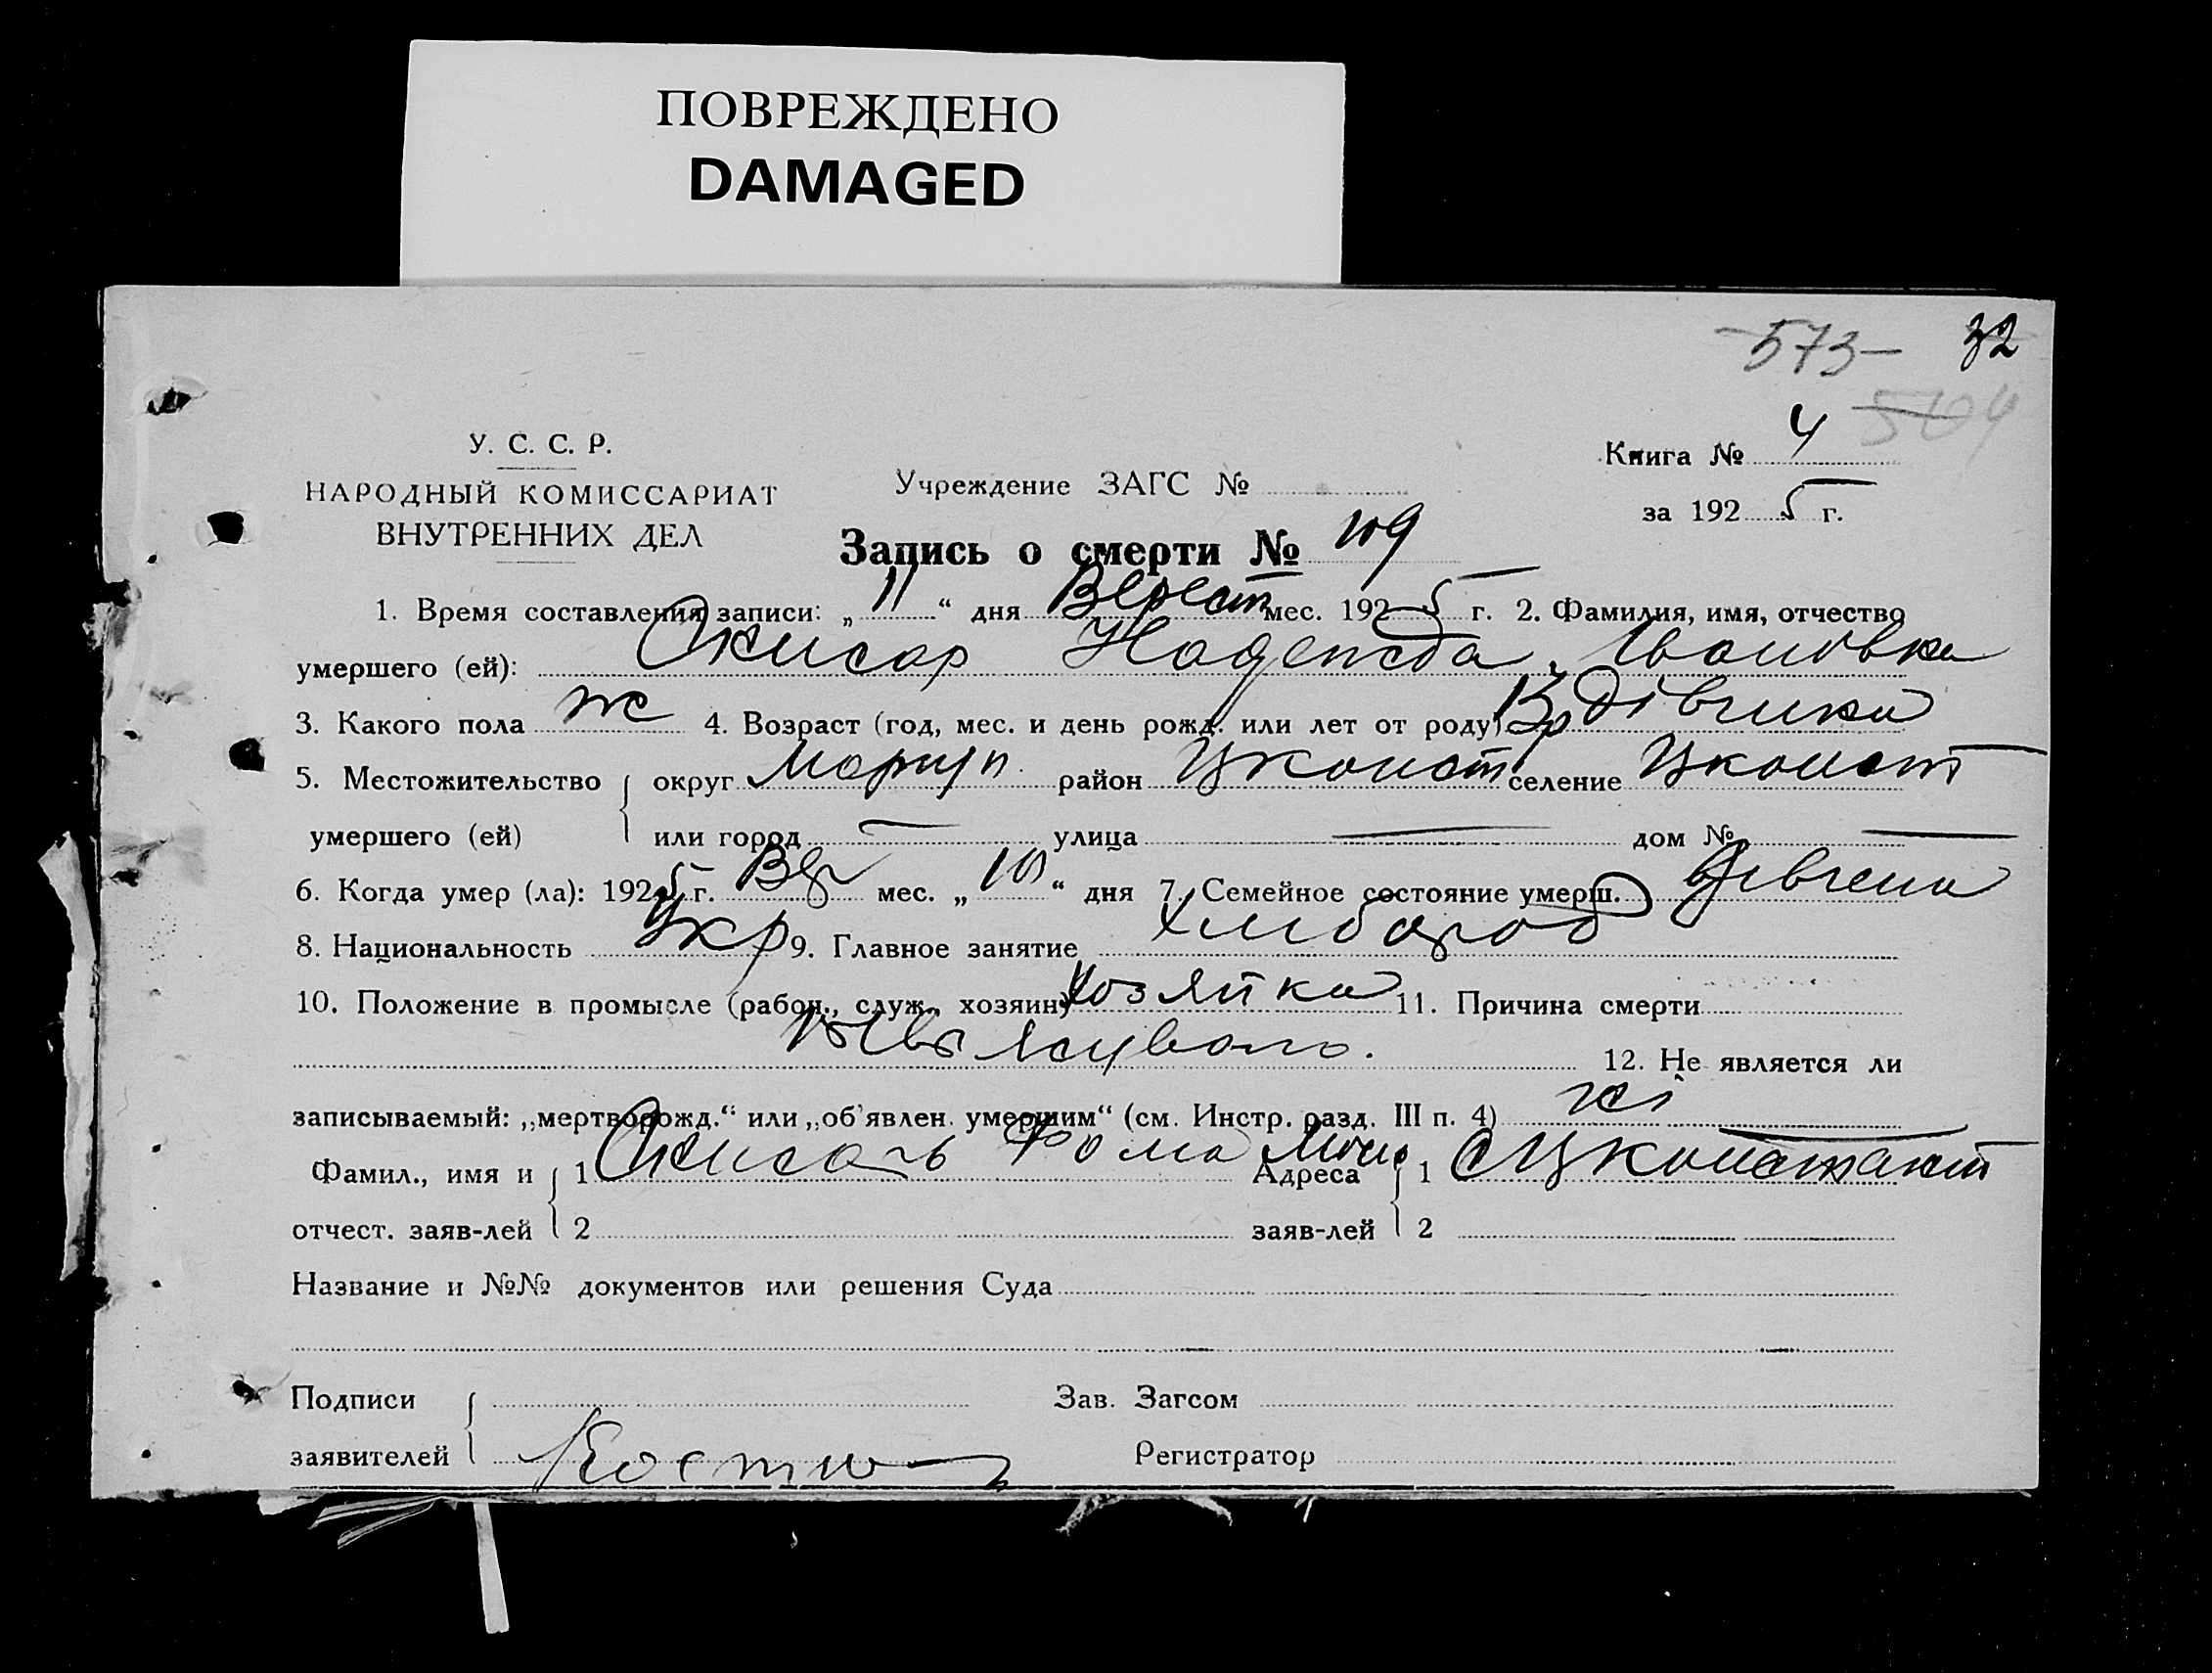 ПОВРЕЖДЕНО
DAMAGED
573— 32
У. С. С. Р.
НАРОДНЫЙ КОМИССАРИАТ
ВНУТРЕННИХ ДЕЛ
Учреждение ЗАГС №
Книга № 4
за 192 5 г.
Запись о смерти № 109
1. Время составления записи: „ 11 “ дня Верест мес. 192 5 г. 2. Фамилия, имя, отчество
умершего (ей): Надежда Ивановна
3. Какого пола ж 4. Возраст (год, мес. и день рожд. или лет от роду) дівчина
5. Местожительство округ Мариуп район Цконст селение Цконст
умершего (ей) или город — улица — дом № —
6. Когда умер (ла): 1925 г. Вер мес. „ 10 “ дня 7. Семейное состояние умерш.
8. Национальность Укр 9. Главное занятие хлібороб
10. Положение в промысле (рабоч., служ., хозяин) хозяйка 11. Причина смерти
12. Не является ли
записываемый: „мертворожд.“ или „об'явлен умершим“ (см. Инстр. разд. III п. 4) ні
Фамил., имя и 1 Фома Адреса 1 Цконстант
отчест. заяв-лей 2 заяв-лей 2
Название и №№ документов или решения Суда
Подписи Зав. Загсом
заявителей Регистратор